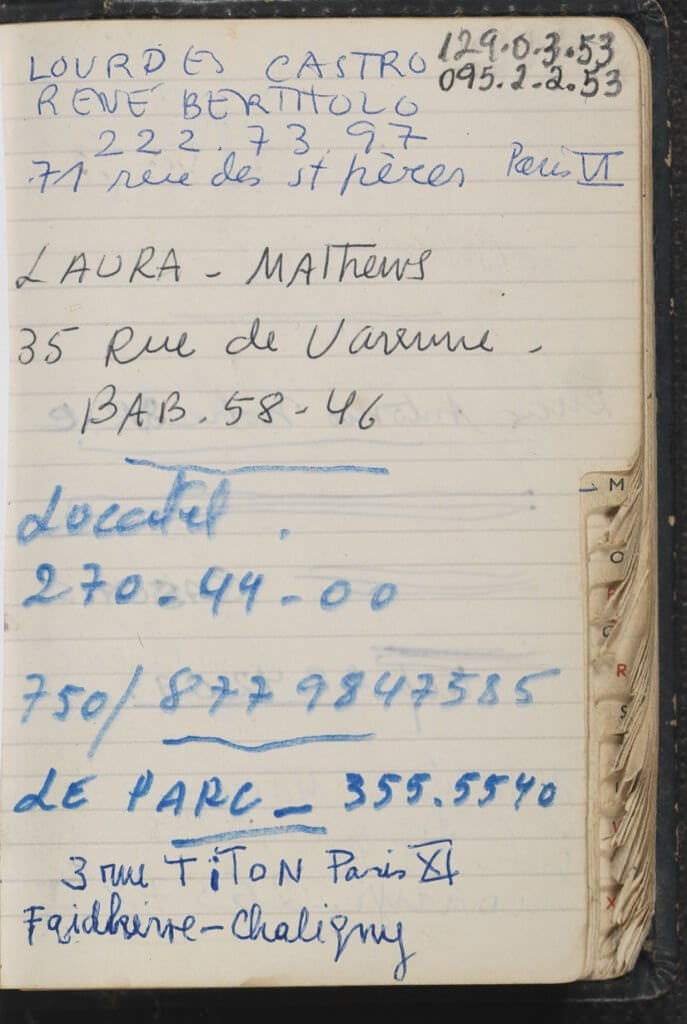 129.0.3.53
095.2.2.53
LOURDES CASTRO
RENÉ BERTHOLO
222.73.97
71 rue des st pères Paris VI
LAURA - MATHEWS
35 Rue de Varenne -
BAB. 58-46
Locatel.
270-44-00
750/ 877 9847585
LE PARC - 355.5540
3 rue TITON Paris XI
Faidherve-Chaligny
M
O
P
Q
R
S
T
V
X